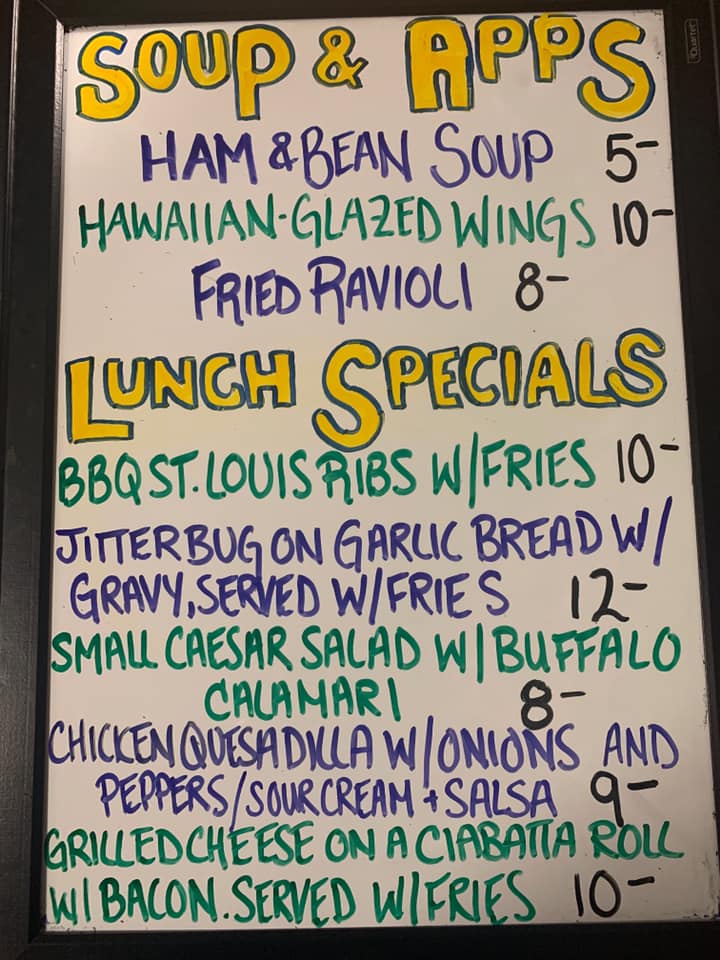 Quartet
SOUP & APPS
HAM & BEAN SOUP 5-
HAWAIIAN-GLAZED WINGS 10-
FRIED RAVIOLI 8-
LUNCH SPECIALS
BBQ ST. LOUIS RIBS W/FRIES 10-
JITTERBUG ON GARLIC BREAD W/
GRAVY, SERVED W/FRIES 12-
SMALL CAESAR SALAD W/BUFFALO
CALAMARI 8-
CHICKEN QUESADILLA W/ONIONS AND
PEPPERS/SOUR CREAM + SALSA 9-
GRILLED CHEESE ON A CIABATTA ROLL
W/BACON. SERVED W/FRIES 10-